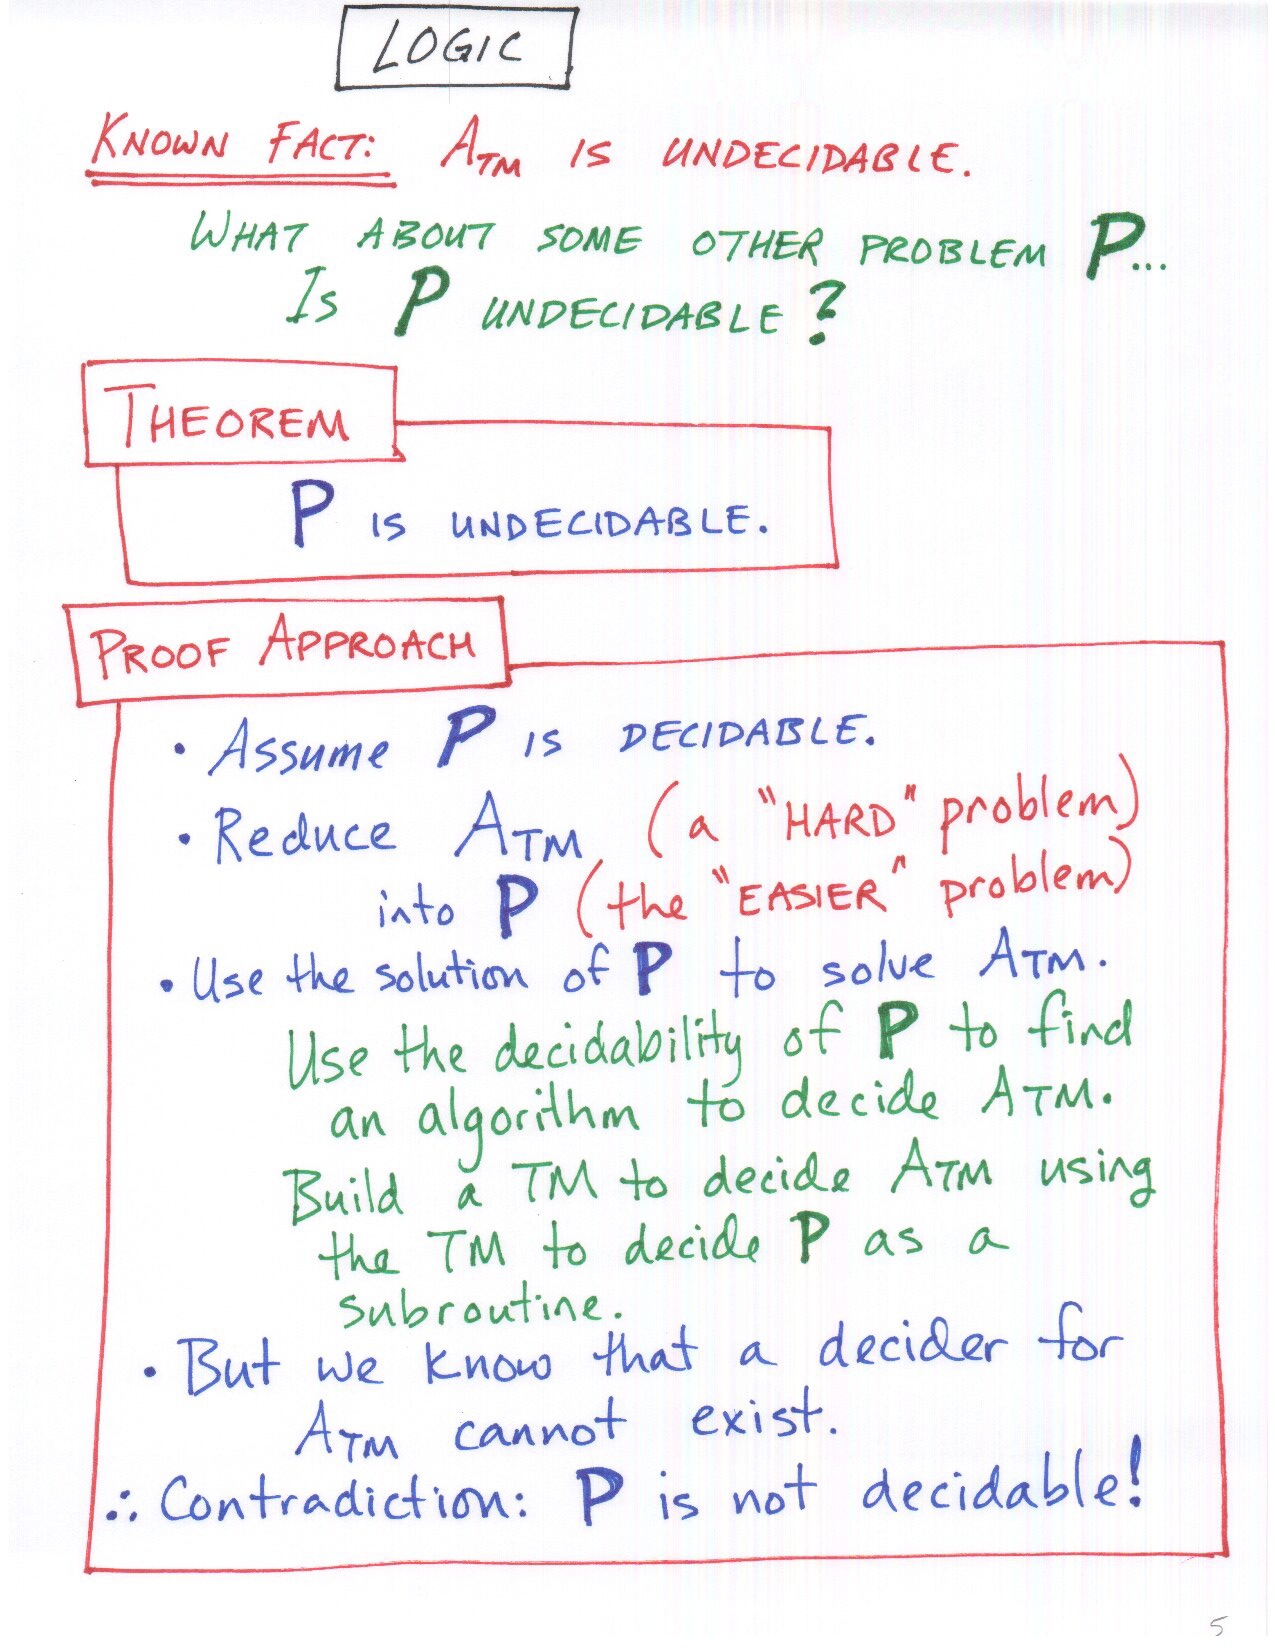 LOGIC
KNOWN FACT: ATM IS UNDECIDABLE.
WHAT ABOUT SOME OTHER PROBLEM P...
IS P UNDECIDABLE?
THEOREM
P IS UNDECIDABLE.
PROOF APPROACH
• ASSUME P IS DECIDABLE.
• Reduce ATM (a "HARD" problem)
into P (the "EASIER" problem)
• Use the solution of P to solve ATM.
Use the decidability of P to find
an algorithm to decide ATM.
Build a TM to decide ATM using
the TM to decide P as a
subroutine.
• But we know that a decider for
ATM cannot exist.
∴ Contradiction: P is not decidable!
5